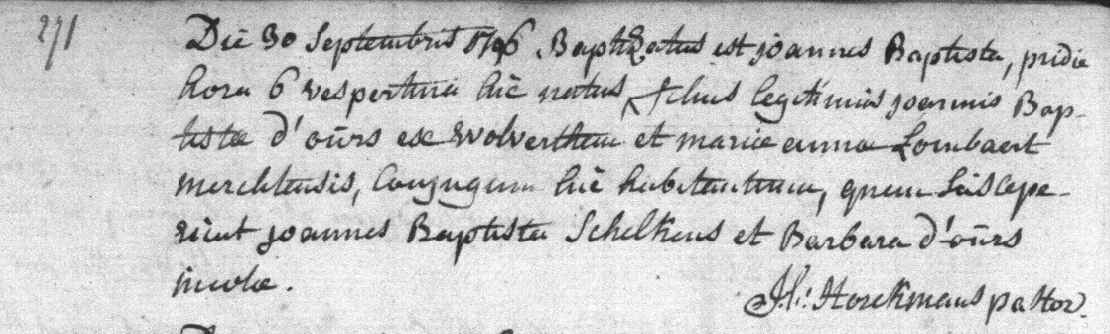 271
Die 30 Septembris 1796. Baptizatus est joannes Baptista, pridie
hora 6 vespertina hic natus, filius legitimus joannis Bap-
tistæ d'oürs ex Wolverthem et mariæ anna Lombaert
merchtensis, Conjugum hic habitantium, quem Suscepe-
runt joannes Baptista Schelkens et Barbara d'oürs
incolæ.
Horckmans pastor.